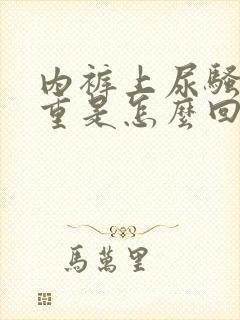 内裤上尿騷
重是怎麼回
馬萬里